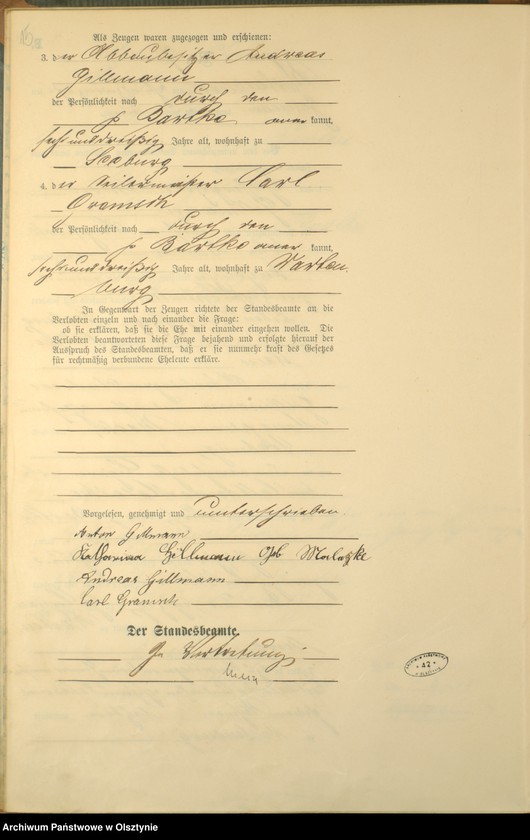 Als Zeugen waren zugezogen und erschienen:
3. der Abbaubesitzer Andreas
Gillmann
der Persönlichkeit nach durch den
p Bartko aner kannt,
sechsunddreißig Jahre alt, wohnhaft zu
Seeburg
4. der Seilermeister Carl
der Persönlichkeit nach durch den
p Bartko aner kannt,
sechsunddreißig Jahre alt, wohnhaft zu Warten
burg
In Gegenwart der Zeugen richtete der Standesbeamte an die
Verlobten einzeln und nach einander die Frage:
ob sie erklären, daß sie die Ehe mit einander eingehen wollen. Die
Verlobten beantworteten diese Frage bejahend und erfolgte hierauf der
Ausspruch des Standesbeamten, daß er sie nunmehr kraft des Gesetzes
für rechtmäßig verbundene Eheleute erkläre.
Vorgelesen, genehmigt und unterschrieben.
Anton Gillmann
Katharina Hillmann geb
Andreas Hillmann
Carl
Der Standesbeamte.
In Vertretung
42
Archiwum Państwowe w Olsztynie